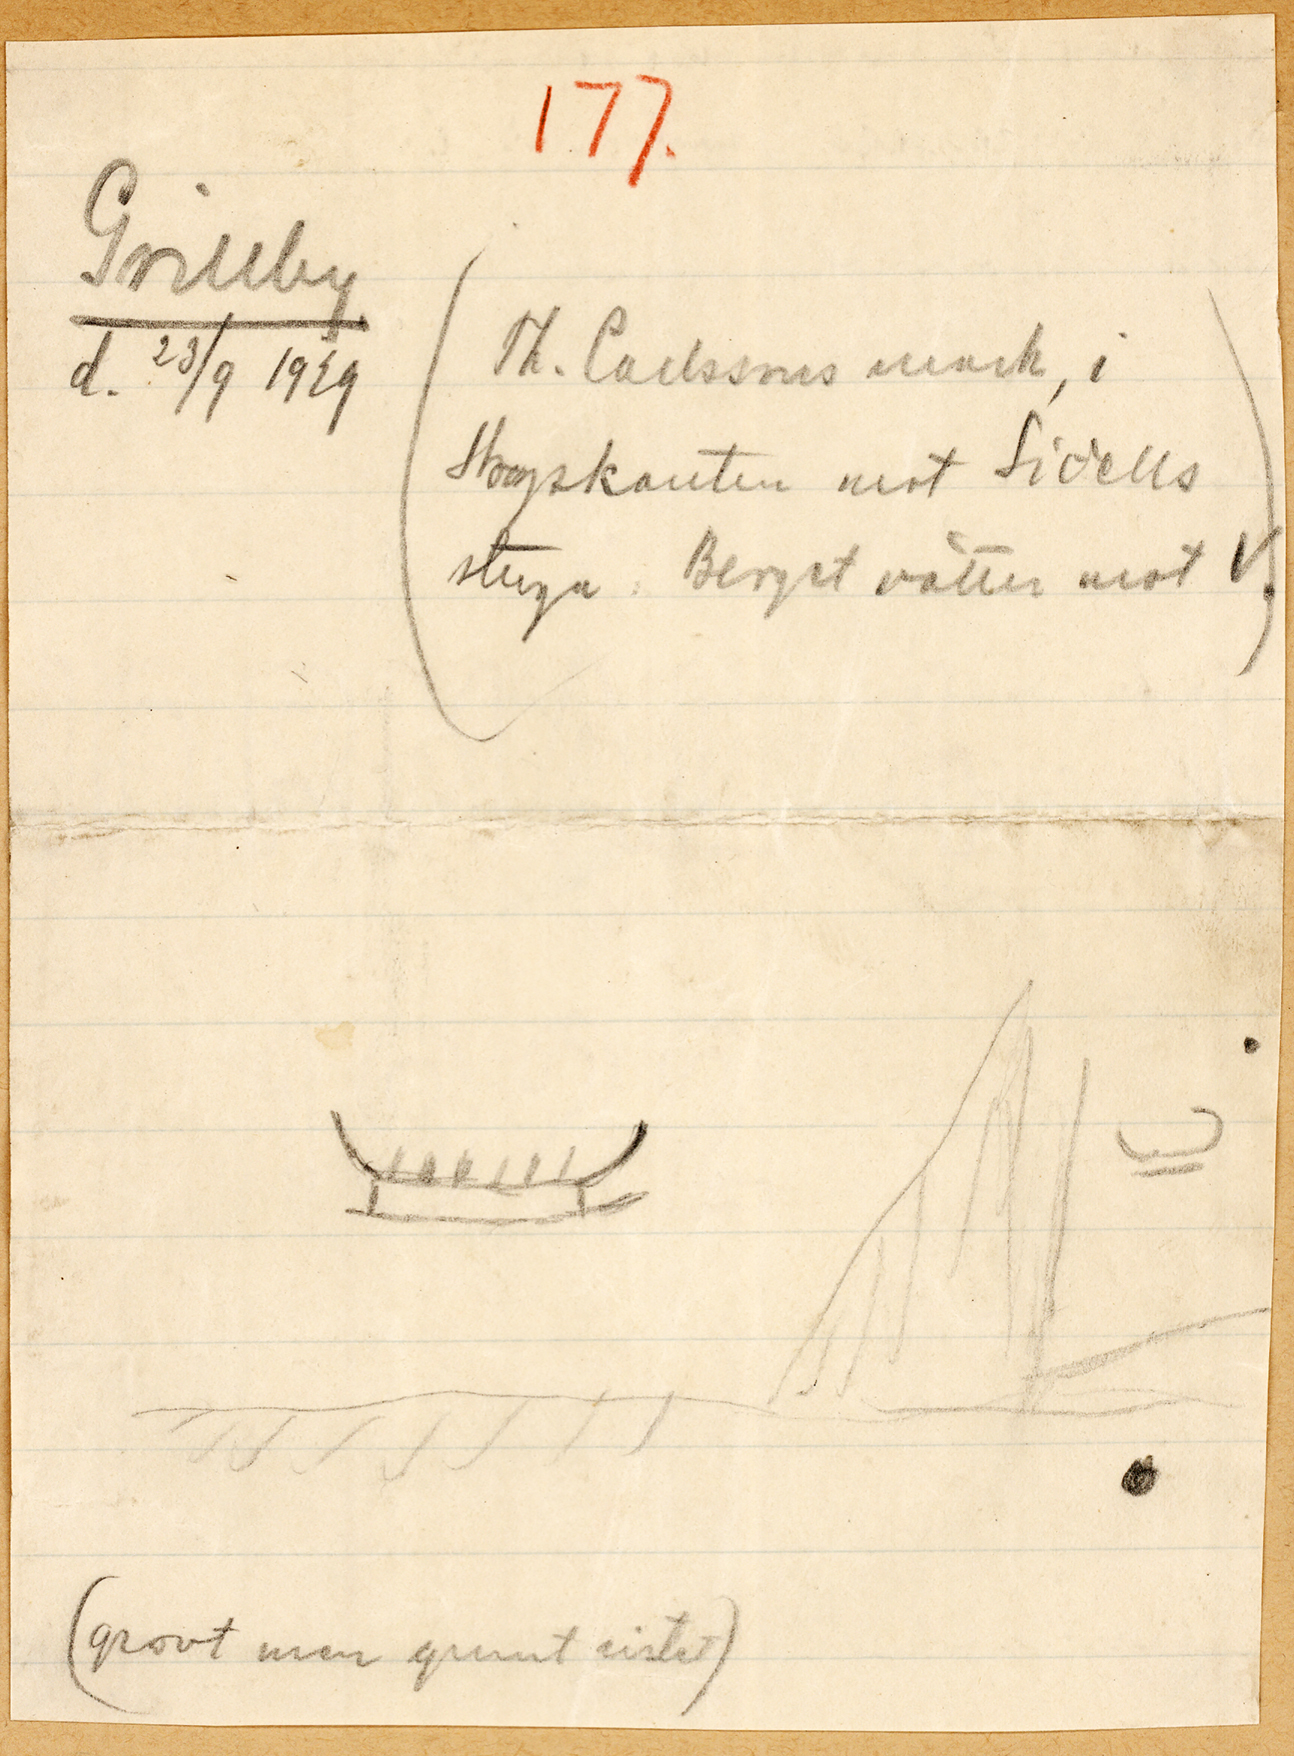 177.
Grillby
d. 23/9 1929
(Th. Carlssons mark, i
skogskanten mot Sidells
stuga. Berget vätter mot V.)
(grovt men grunt ristat)